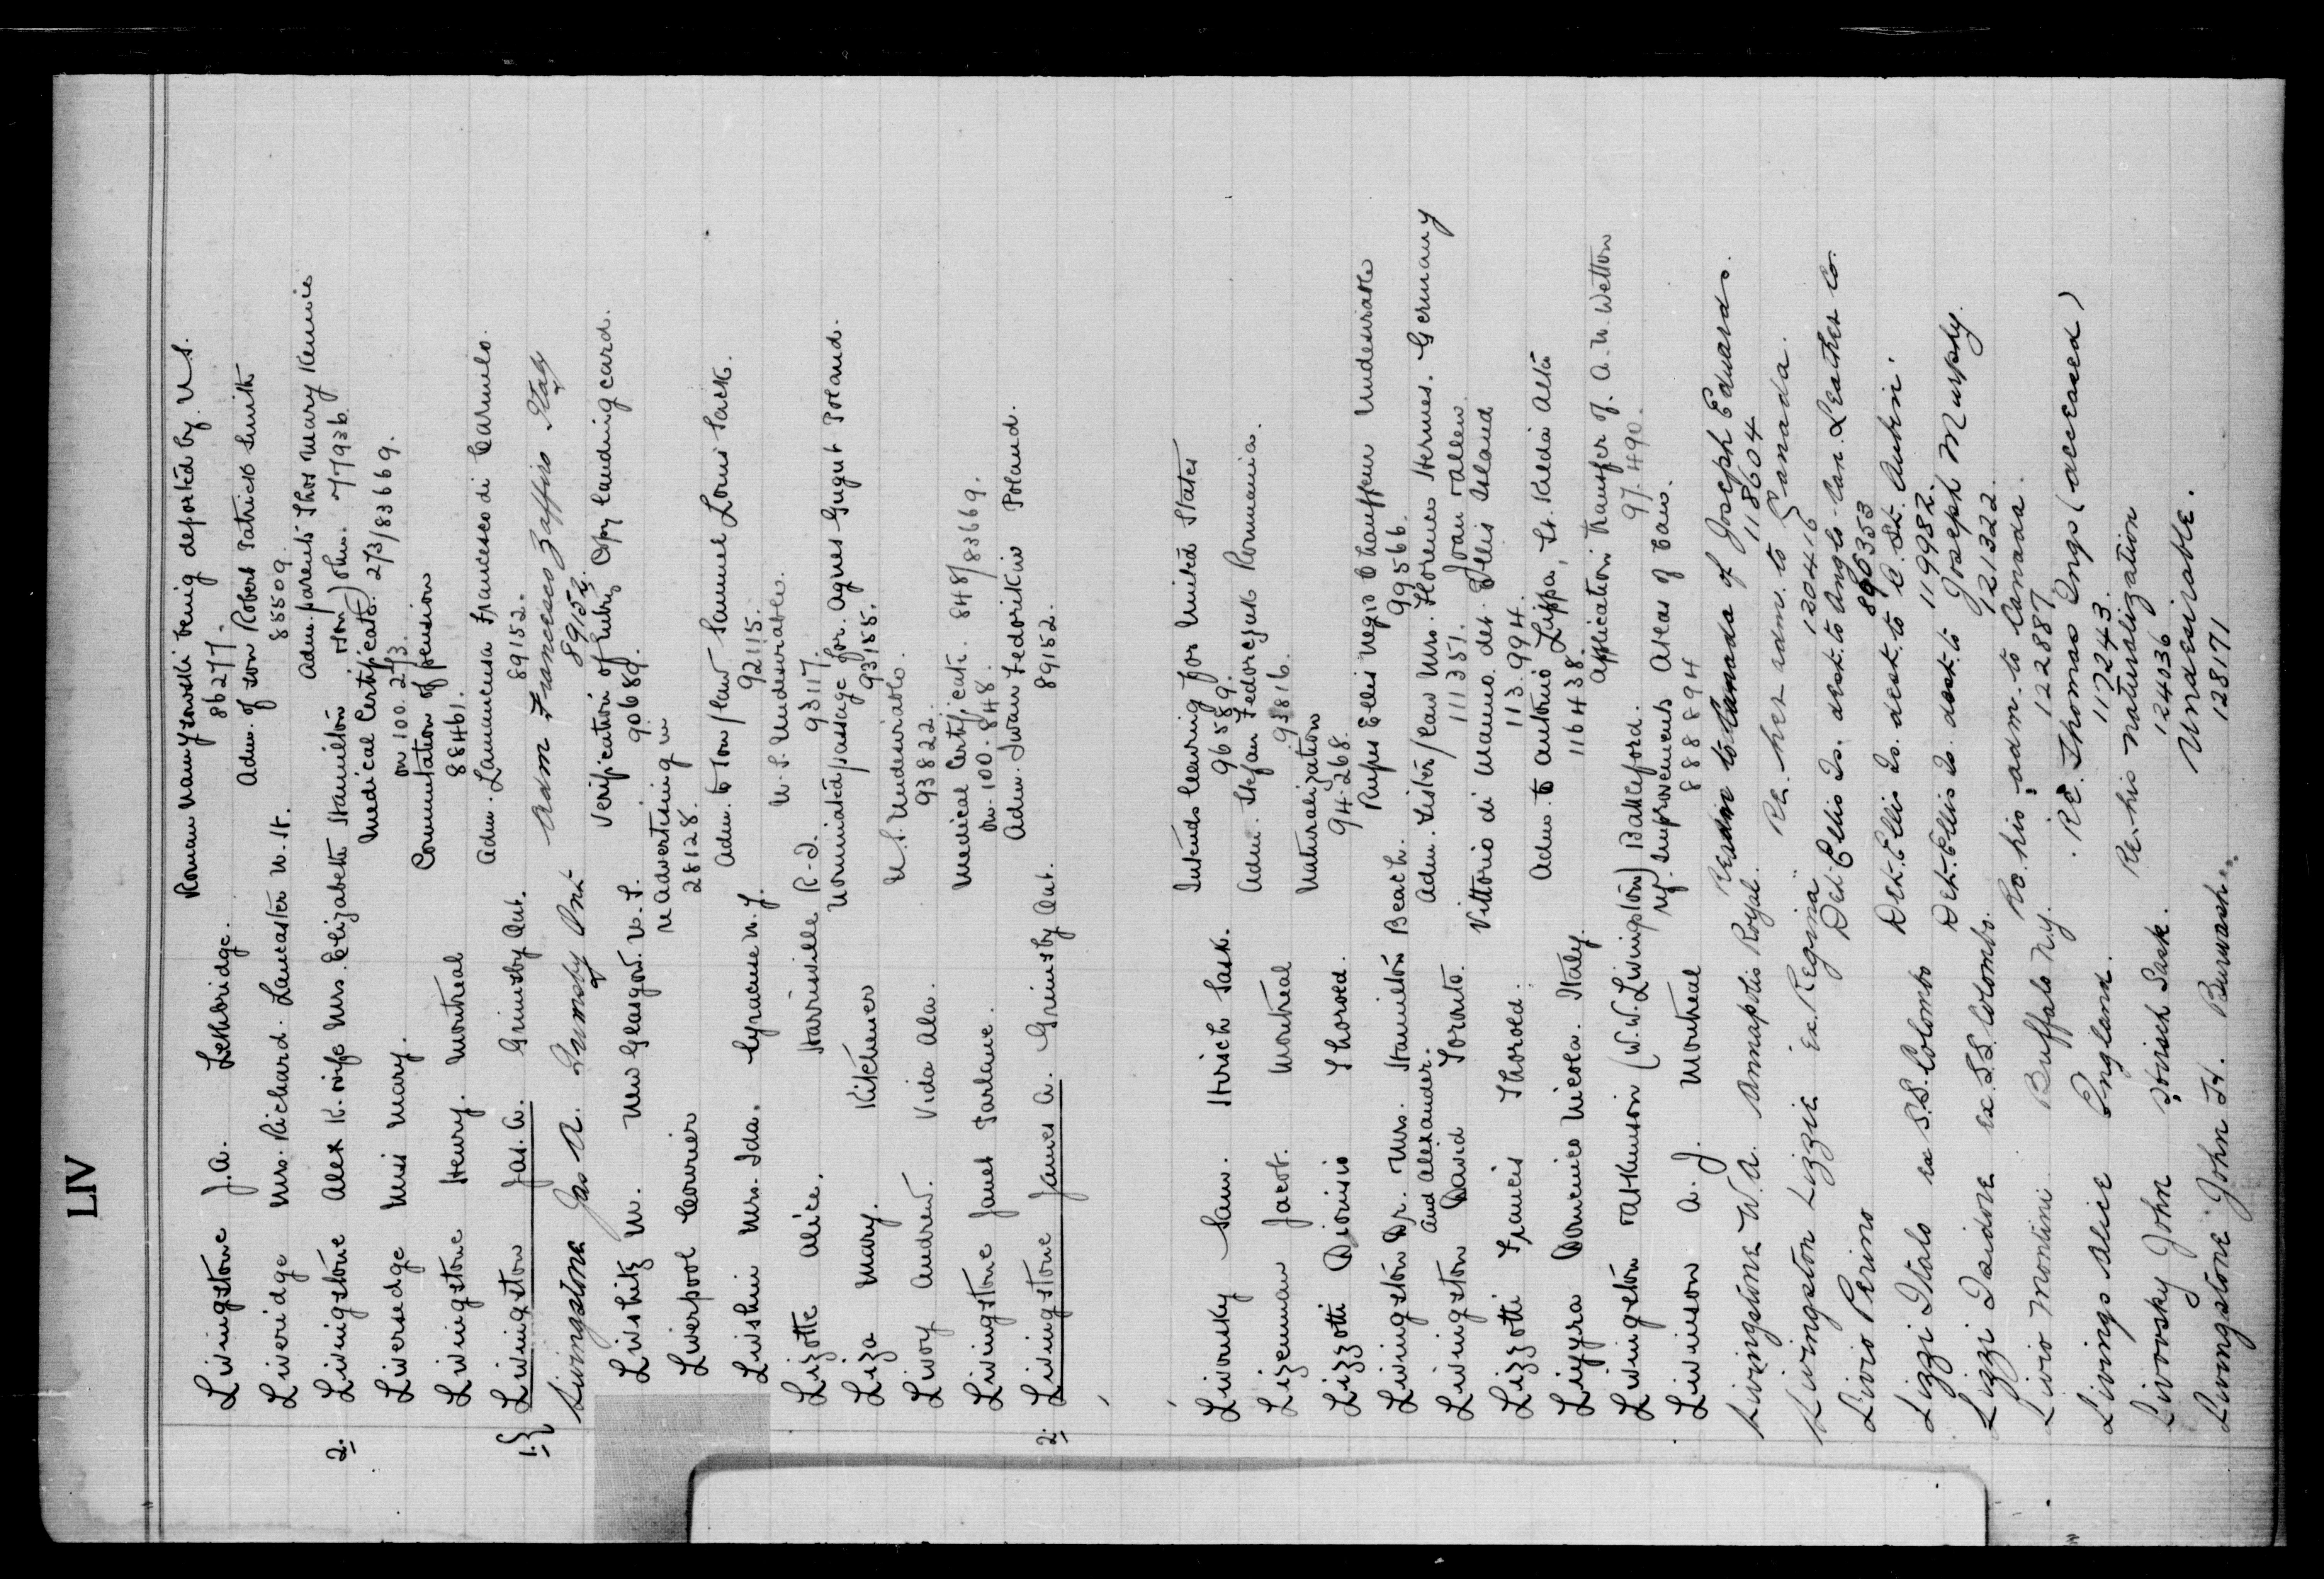 LIV
Livingstone J.A. Lethbridge. Roman being deported by U.S.
86277.
Liveridge Mrs. Richard. Lancaster N.H. Adm. of son Robert Patrick Smith
85509.
2. Livingstone Alex K. wife Mrs. Elizabeth Hamilton Adm. parents Thos Mary Rennie
Liversedge Miss Mary. Medical Certificate. 2/3/83669.
on 100. 2/3.
Livingstone Henry. Montreal Commutation of pension
88461.
1. Livingston Jas. A. Grimsby Ont. Adm. Lamancusa Francesco di Carmelo.
89152.
Livingstone Jas A. Grimsby Ont Adm Francesco Zaffiro Italy
89152.
Livshitz M. New Glasgow. N.S. Verification of Entry Copy landing card.
90689.
Liverpool Courier re Advertising in
28128.
Livshin Mrs. Ida. Syracuse N.Y. Adm. to Son/law Samuel Louis Sack.
92115.
Lizotte Alice. Harrisville R-I. U.S. Undesirable.
93117.
Liza Mary. Kitchener Nominated passage for. Agnes Gugut Poland.
93155.
Livoy Andrew. Vida Ala. U.S. Undesirable.
93822.
Livingstone Janet Parlane. Medical Certificate. 848/83669.
on. 100. 848.
2. Livingstone James A. Grimsby Ont. Adm. Iwan Fedorikiw Poland.
89152.
Livonsky Sam. Hirsch Sask. Intends leaving for United States
96589.
Lizenman Jacob. Montreal Adm. Stefan Fedorczuk Roumania.
93816.
Lizzotti Dionisio Thorold. Naturalization
94268.
Livingston Dr. Mrs. Hamilton Beach. Rufus Ellis negro Chauffeur Undesirable
and Alexander. 99566.
Livingston David Toronto. Adm. Sister/law Mrs. Florence Hermes. Germany
111351. Joan
Lizzotti Francis Thorold. Vittorio di Manno. det. Ellis Island
113.994.
Lizyra Domenico Nicola. Italy. Adm. to Antonio Lizzra, St. Kilda Alta
116438.
Livingston Atkinson (W.W. Livingston) Battleford. Application Transfer of. A. W. Wetton
97.490.
Livinson A. J. Montreal re. Improvements Atlas of Can.
888894
Livingstone W. A. Annapolis Royal. Readm to Canada of Joseph Edwards.
118604
Livingston Lizzie Ex. "Regina" Re. her adm. to Canada.
120416
Livio Perino Det. Ellis Is. dest. to Anglo-Can. Leather Co.
890353
Lizzi Italo ex S.S. Colombo Det. Ellis Is. dest. to C. St. Aubin.
119982.
Lizzi Isidore ex. S.S. Colombo. Det. Ellis Is. dest. to Joseph Murphy.
121322.
Livio Montini Buffalo N.Y. Re. his adm. to Canada.
122887
Livings Alice England. Re. Thomas Ings (deceased)
117243.
Livovsky John Hirsch Sask. Re. his naturalization
124036
Livingstone John H. Burwash. Undesirable.
128171